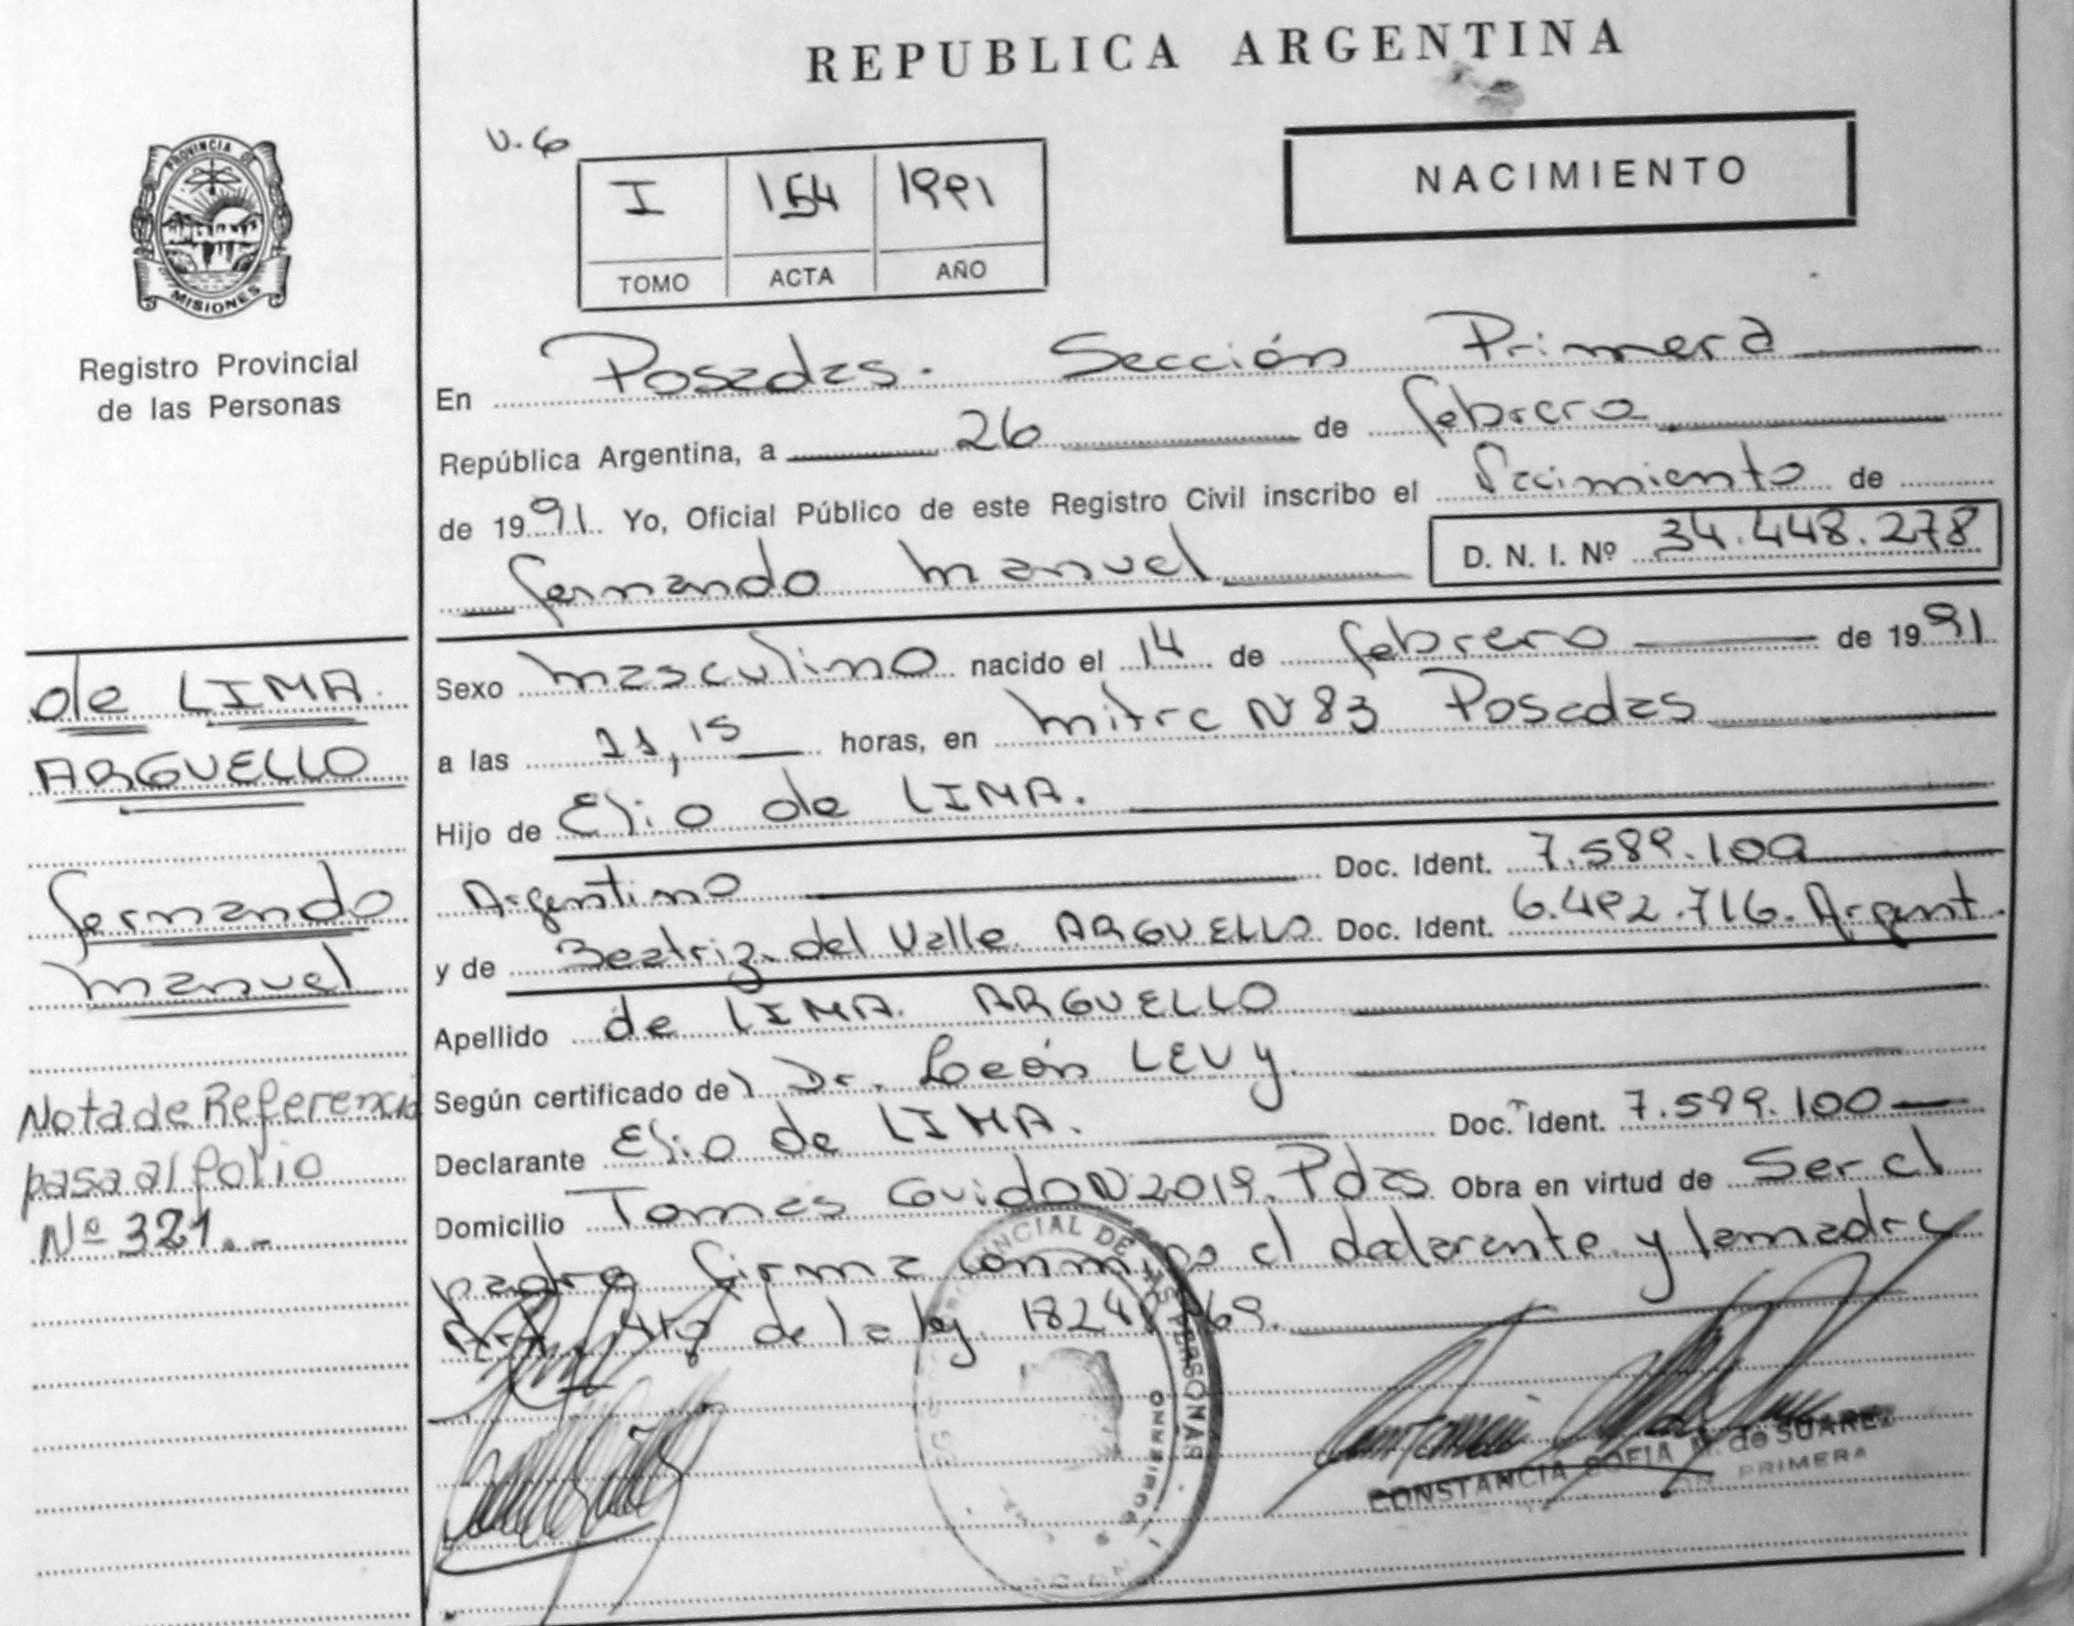 REPUBLICA ARGENTINA
PROVINCIA DE
MISIONES
Registro Provincial
de las Personas
V. 6
I 154 1991
TOMO ACTA AÑO
NACIMIENTO
En Posadas. Sección Primera
República Argentina, a 26 de febrero
de 1991. Yo, Oficial Público de este Registro Civil inscribo el Nacimiento de
Fernando Manuel D. N. I. Nº 34.448.278
Sexo masculino nacido el 14 de febrero de 1991
a las 11,15 horas, en Mitre Nº 83 Posadas
Hijo de Elio de LIMA.
Argentino Doc. Ident. 7.589.100
y de Beatriz del Valle ARGUELLO Doc. Ident. 6.492.716. Argent.
Apellido de LIMA ARGUELLO
Según certificado del Dr. León LEVY.
Declarante Elio de LIMA. Doc. Ident. 7.599.100
Domicilio Tomas Guido Nº 2019. Pdas Obra en virtud de Ser el
padre firma conmigo el declarante y la madre
Art. 4to de la ley. 18248/69.
de LIMA.
ARGUELLO
Fernando
Manuel
Nota de Referencia
pasa al folio
Nº 321.-
PROVINCIAL DE LAS PERSONAS
GOBIERNO
CONSTANCIA SOFIA M. de SUAREZ
PRIMERA